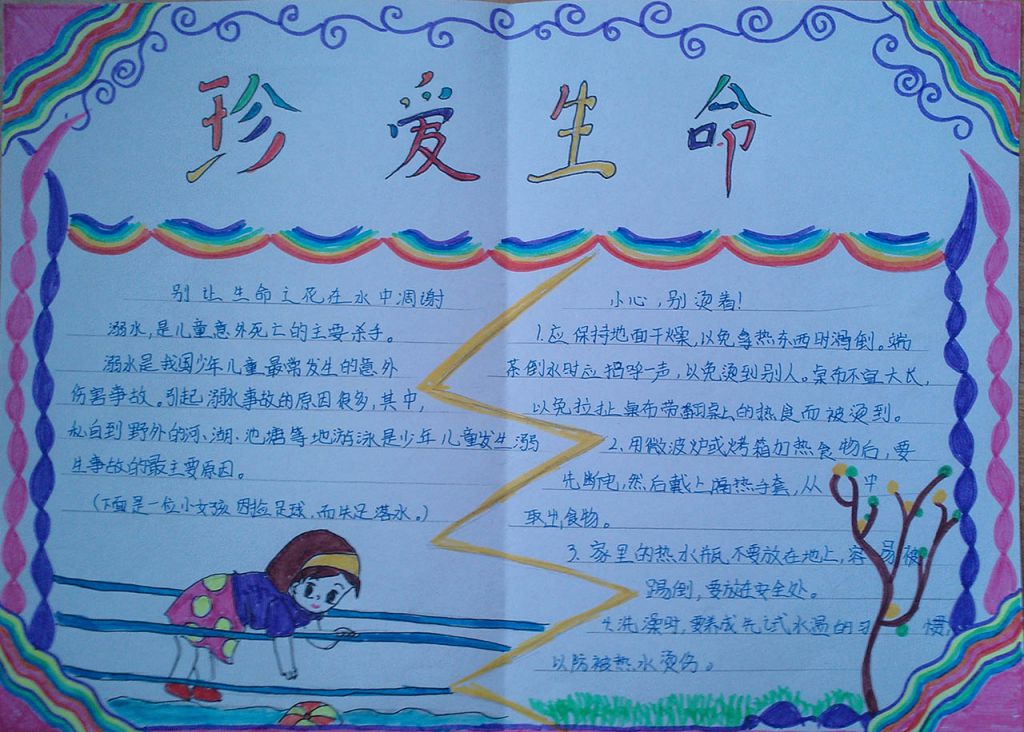 珍爱生命
别让生命之花在水中凋谢
溺水,是儿童意外死亡的主要杀手。
溺水是我国少年儿童最常发生的意外
伤害事故。引起溺水事故的原因很多,其中,
私自到野外的河、湖、池塘等地游泳是少年儿童发生溺
生事故的最主要原因。
(下面是一位小女孩因捡足球,而失足落水。)
小心,别烫着!
1.应保持地面干燥,以免拿热东西时滑倒。端
茶倒水时应招呼一声,以免烫到别人。桌布不宜太长,
以免拉扯桌布带翻桌上的热食而被烫到。
2.用微波炉或烤箱加热食物后,要
先断电,然后戴上隔热手套,从中
取出食物。
3.家里的热水瓶不要放在地上,容易被
踢倒,要放在安全处。
4.洗澡时,要养成先试水温的习惯,
以防被热水烫伤。